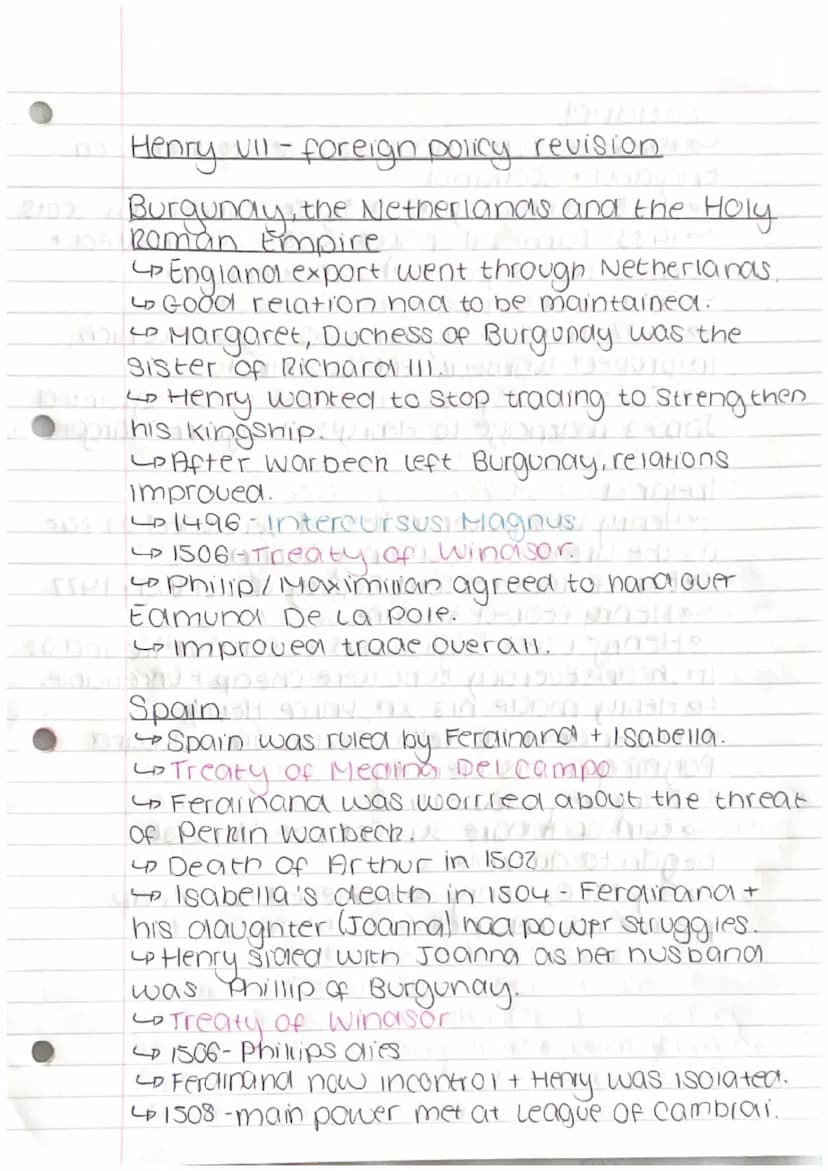 Henry VII - foreign policy revision
Burgundy, the Netherlands and the Holy
Roman Empire
↳ England export went through Netherlands.
↳ Good relation had to be maintained.
↳ Margaret, Duchess of Burgundy was the
sister of Richard III.
↳ Henry wanted to stop trading to strengthen
his kingship.
↳ After Warbeck left Burgundy, relations
improved.
↳ 1496 - Intercursus Magnus
↳ 1506 - Treaty of Windsor.
↳ Philip / Maximilian agreed to hand over
Edmund De La Pole.
↳ improved trade overall.
Spain
↳ Spain was ruled by Ferdinand + Isabella.
↳ Treaty of Medina Del Campo
↳ Ferdinand was worried about the threat
of Perkin Warbeck.
↳ Death of Arthur in 1502
↳ Isabella's death in 1504 - Ferdinand +
his daughter (Joanna) had power struggles.
↳ Henry sided with Joanna as her husband
was Phillip of Burgundy.
↳ Treaty of Windsor
↳ 1506 - Phillips dies
↳ Ferdinand now incontrol + Henry was isolated.
↳ 1508 - main power met at League of Cambrai.